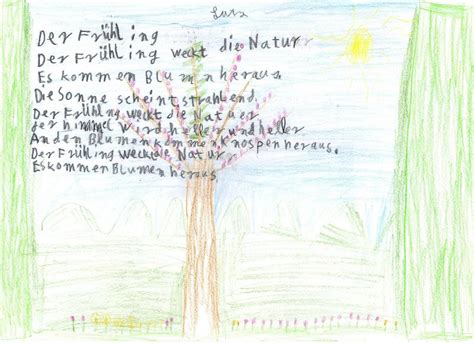 Der Frühling
Der Frühling weckt die Natur
Es kommen Blumen heraus
Die Sonne scheint strahlend
Der Frühling weckt die Natuer
der himmel wird heller und heller
An den Blumen kommen knospen heraus.
Der Frühling weckt die Natur
Es kommen Blumen heraus